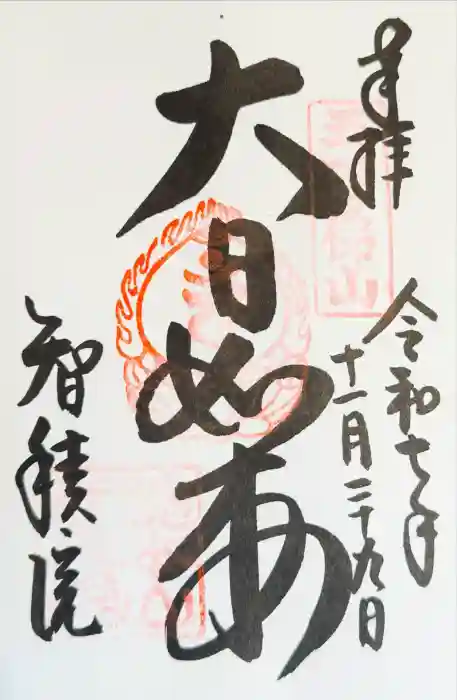 奉拝
令和七年
十一月二十九日
大日如来
智積院